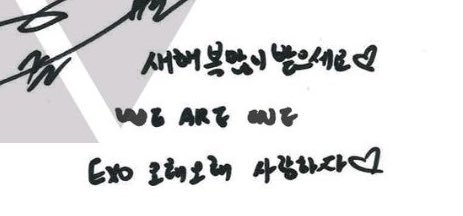 새해 복 많이 받으세요♡
WE ARE ONE
EXO 오래오래 사랑하자♡